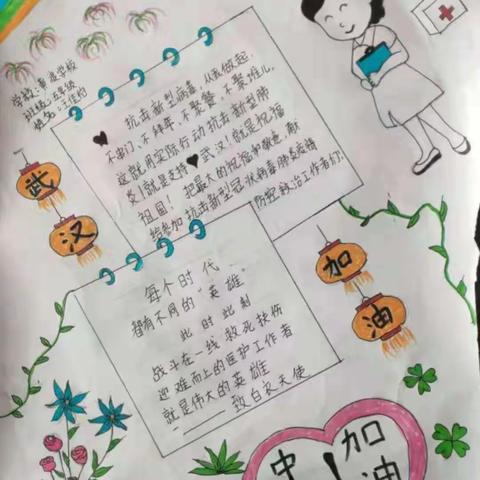 学校：黄渠学校
班级：五年级
姓名：王佳灼
抗击新型病毒，从我做起
不串门、不拜年、不聚餐、不聚堆儿，
这就用实际行动抗击新型肺
炎！就是支持♥武汉！就是祝福
祖国！把最大的祝福和敬意，献
给参加抗击新型冠状病毒肺炎疫情
防控救治工作者们！
武汉
加油
每个时代
都有不同的“英雄”
此时此刻
战斗在一线救死扶伤
迎难而上的医护工作者
就是伟大的英雄
致白衣天使
中
加油
！